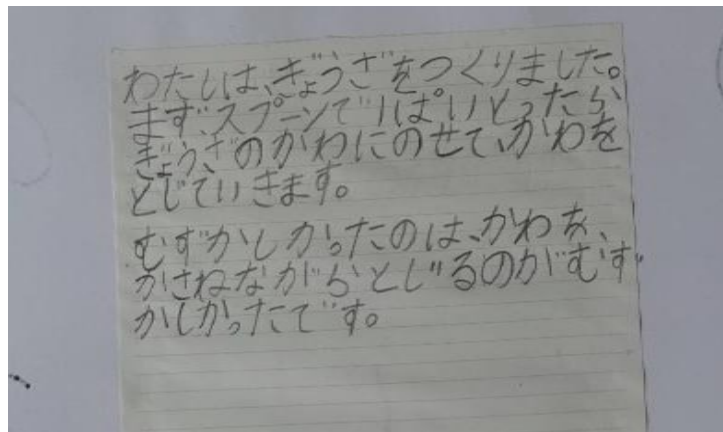 わたしは、ぎょうざをつくりました。
まず、スプーンで1ぱいとったら
ぎょうざのかわにのせて、かわを
とじていきます。
むずかしかったのは、かわを、
かさねながらとじるのがむず
かしかったです。